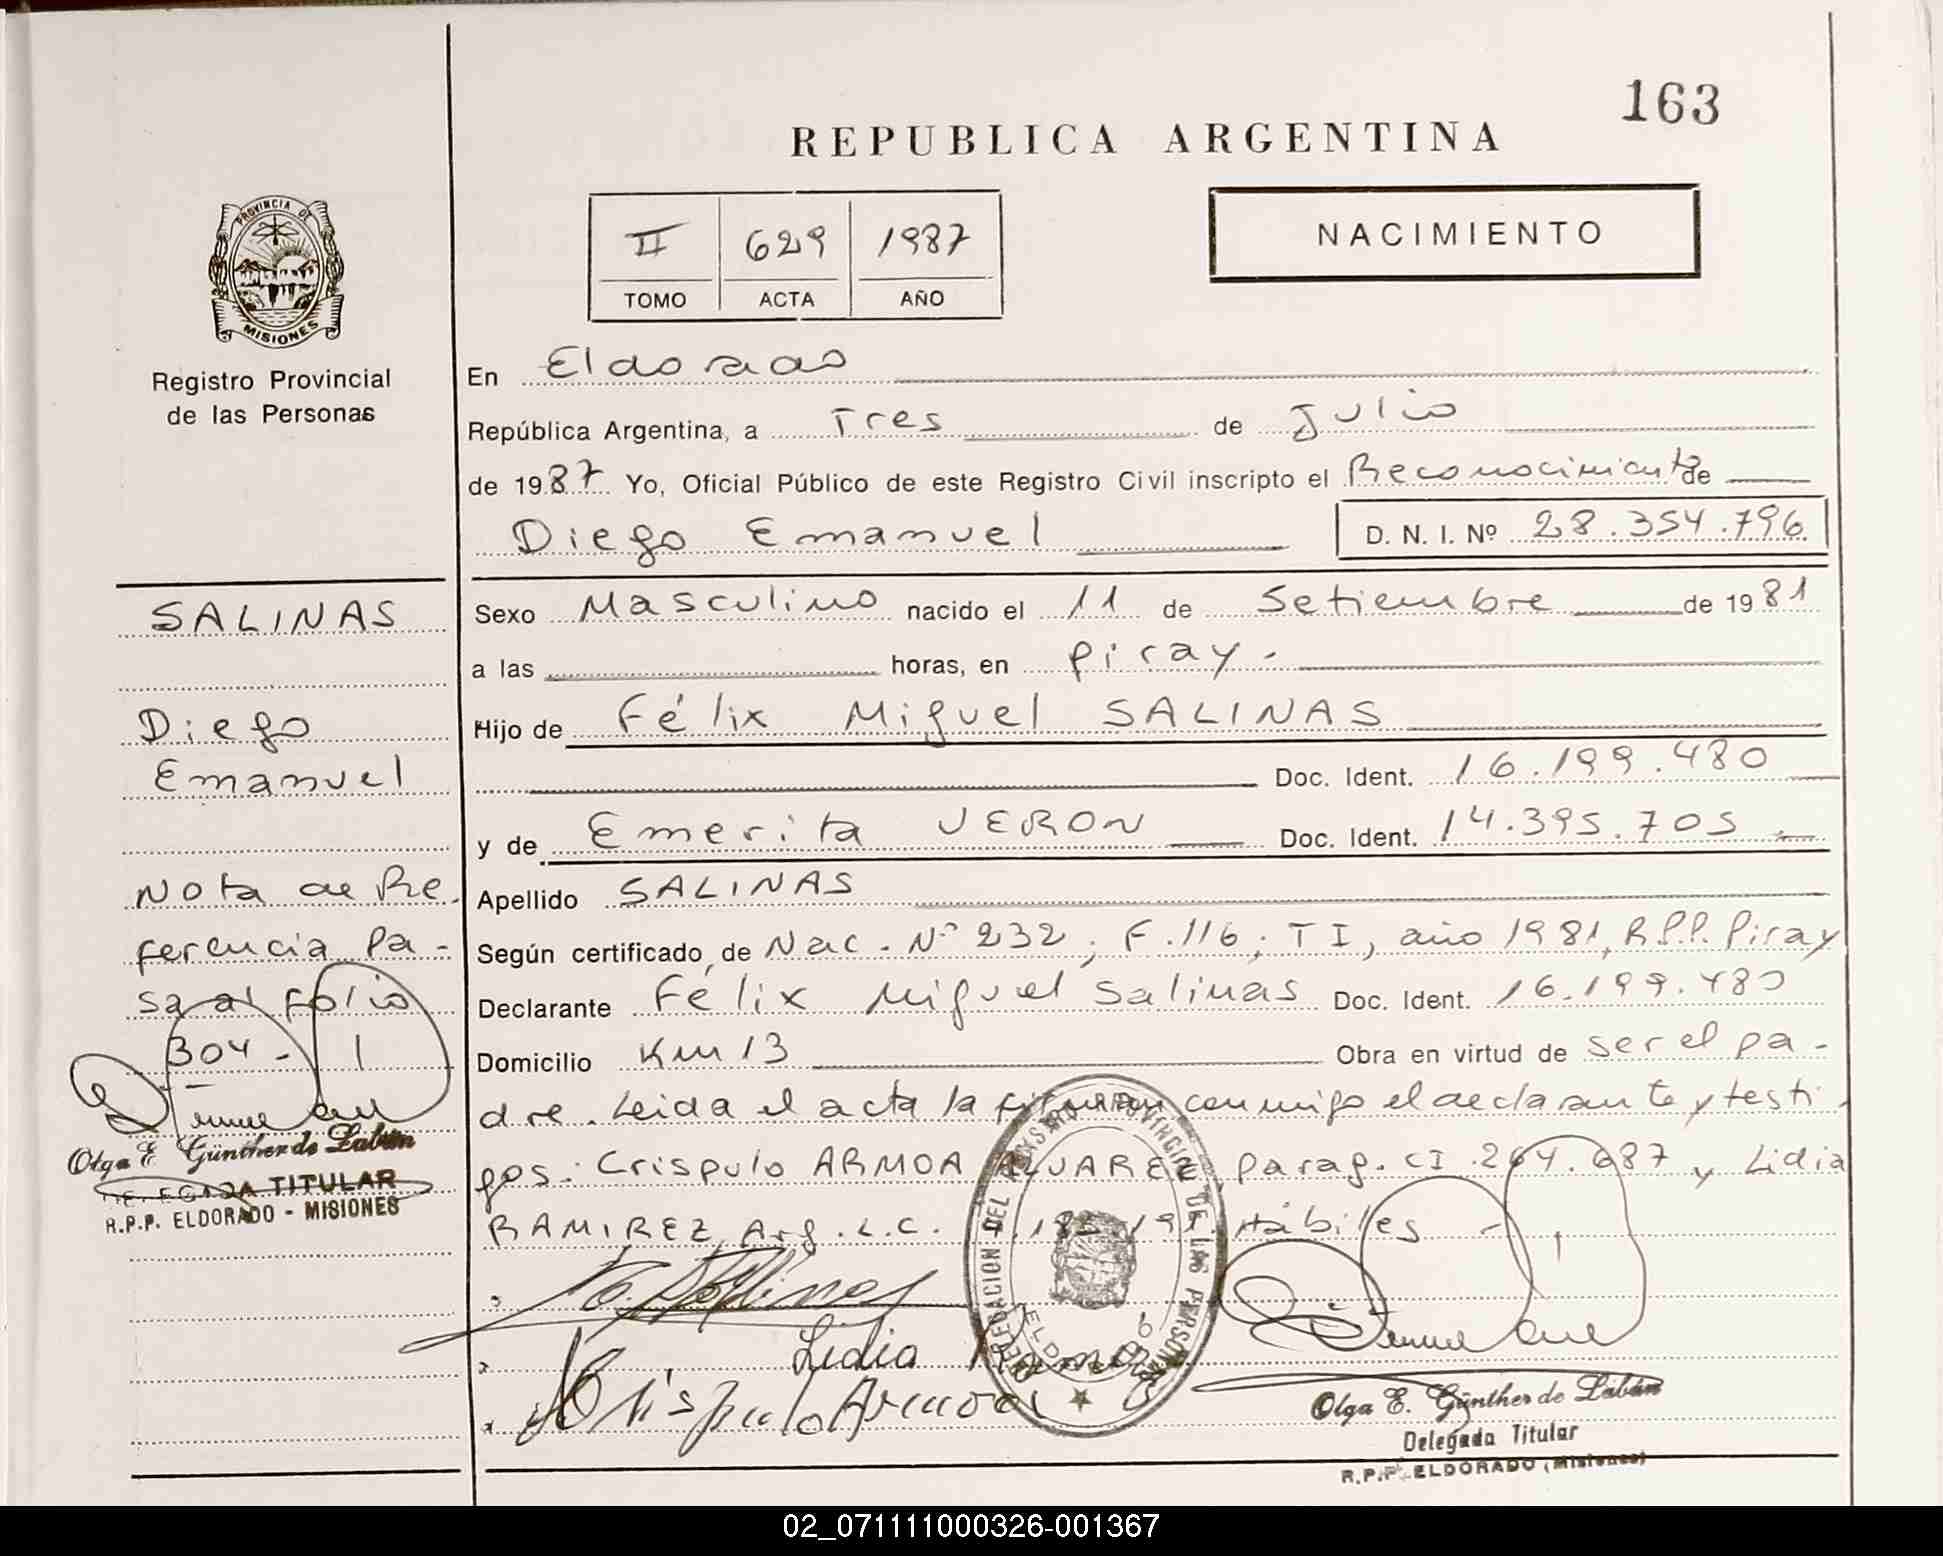 163
REPUBLICA ARGENTINA
PROVINCIA DE
MISIONES
Registro Provincial
de las Personas
II 629 1987
TOMO ACTA AÑO
NACIMIENTO
En Eldorado
República Argentina, a Tres de Julio
de 1987 Yo, Oficial Público de este Registro Civil inscripto el Reconocimiento de
Diego Emanuel D. N. I. Nº 28.354.796
SALINAS
Diego
Emanuel
Nota de Re-
ferencia Pa-
sa al folio
304-
Olga E. Günther de Labán
DELEGADA TITULAR
R.P.P. ELDORADO - MISIONES
Sexo Masculino nacido el 11 de Setiembre de 1981
a las horas, en Piray.
Hijo de Félix Miguel SALINAS
Doc. Ident. 16.199.480
y de Emerita VERON Doc. Ident. 14.395.705
Apellido SALINAS
Según certificado de Nac. Nº 232; F.116; T I, año 1981, R.P.P. Piray
Declarante Félix Miguel Salinas Doc. Ident. 16.199.480
Domicilio Km 13 Obra en virtud de ser el pa-
dre. Leida el acta la firman conmigo el declarante y testi-
gos: Crispulo ARMOA ALVAREZ, Parag. CI. 264.687 y Lidia
RAMIREZ, Arg. L.C. Hábiles -
DELEGACION DEL REGISTRO PROVINCIAL DE LAS PERSONAS
ELDORADO
Salinas
Lidia Ramirez
Crispulo Armoa
Olga E. Günther de Labán
Delegada Titular
R.P.P. ELDORADO (Misiones)
02_071111000326-001367